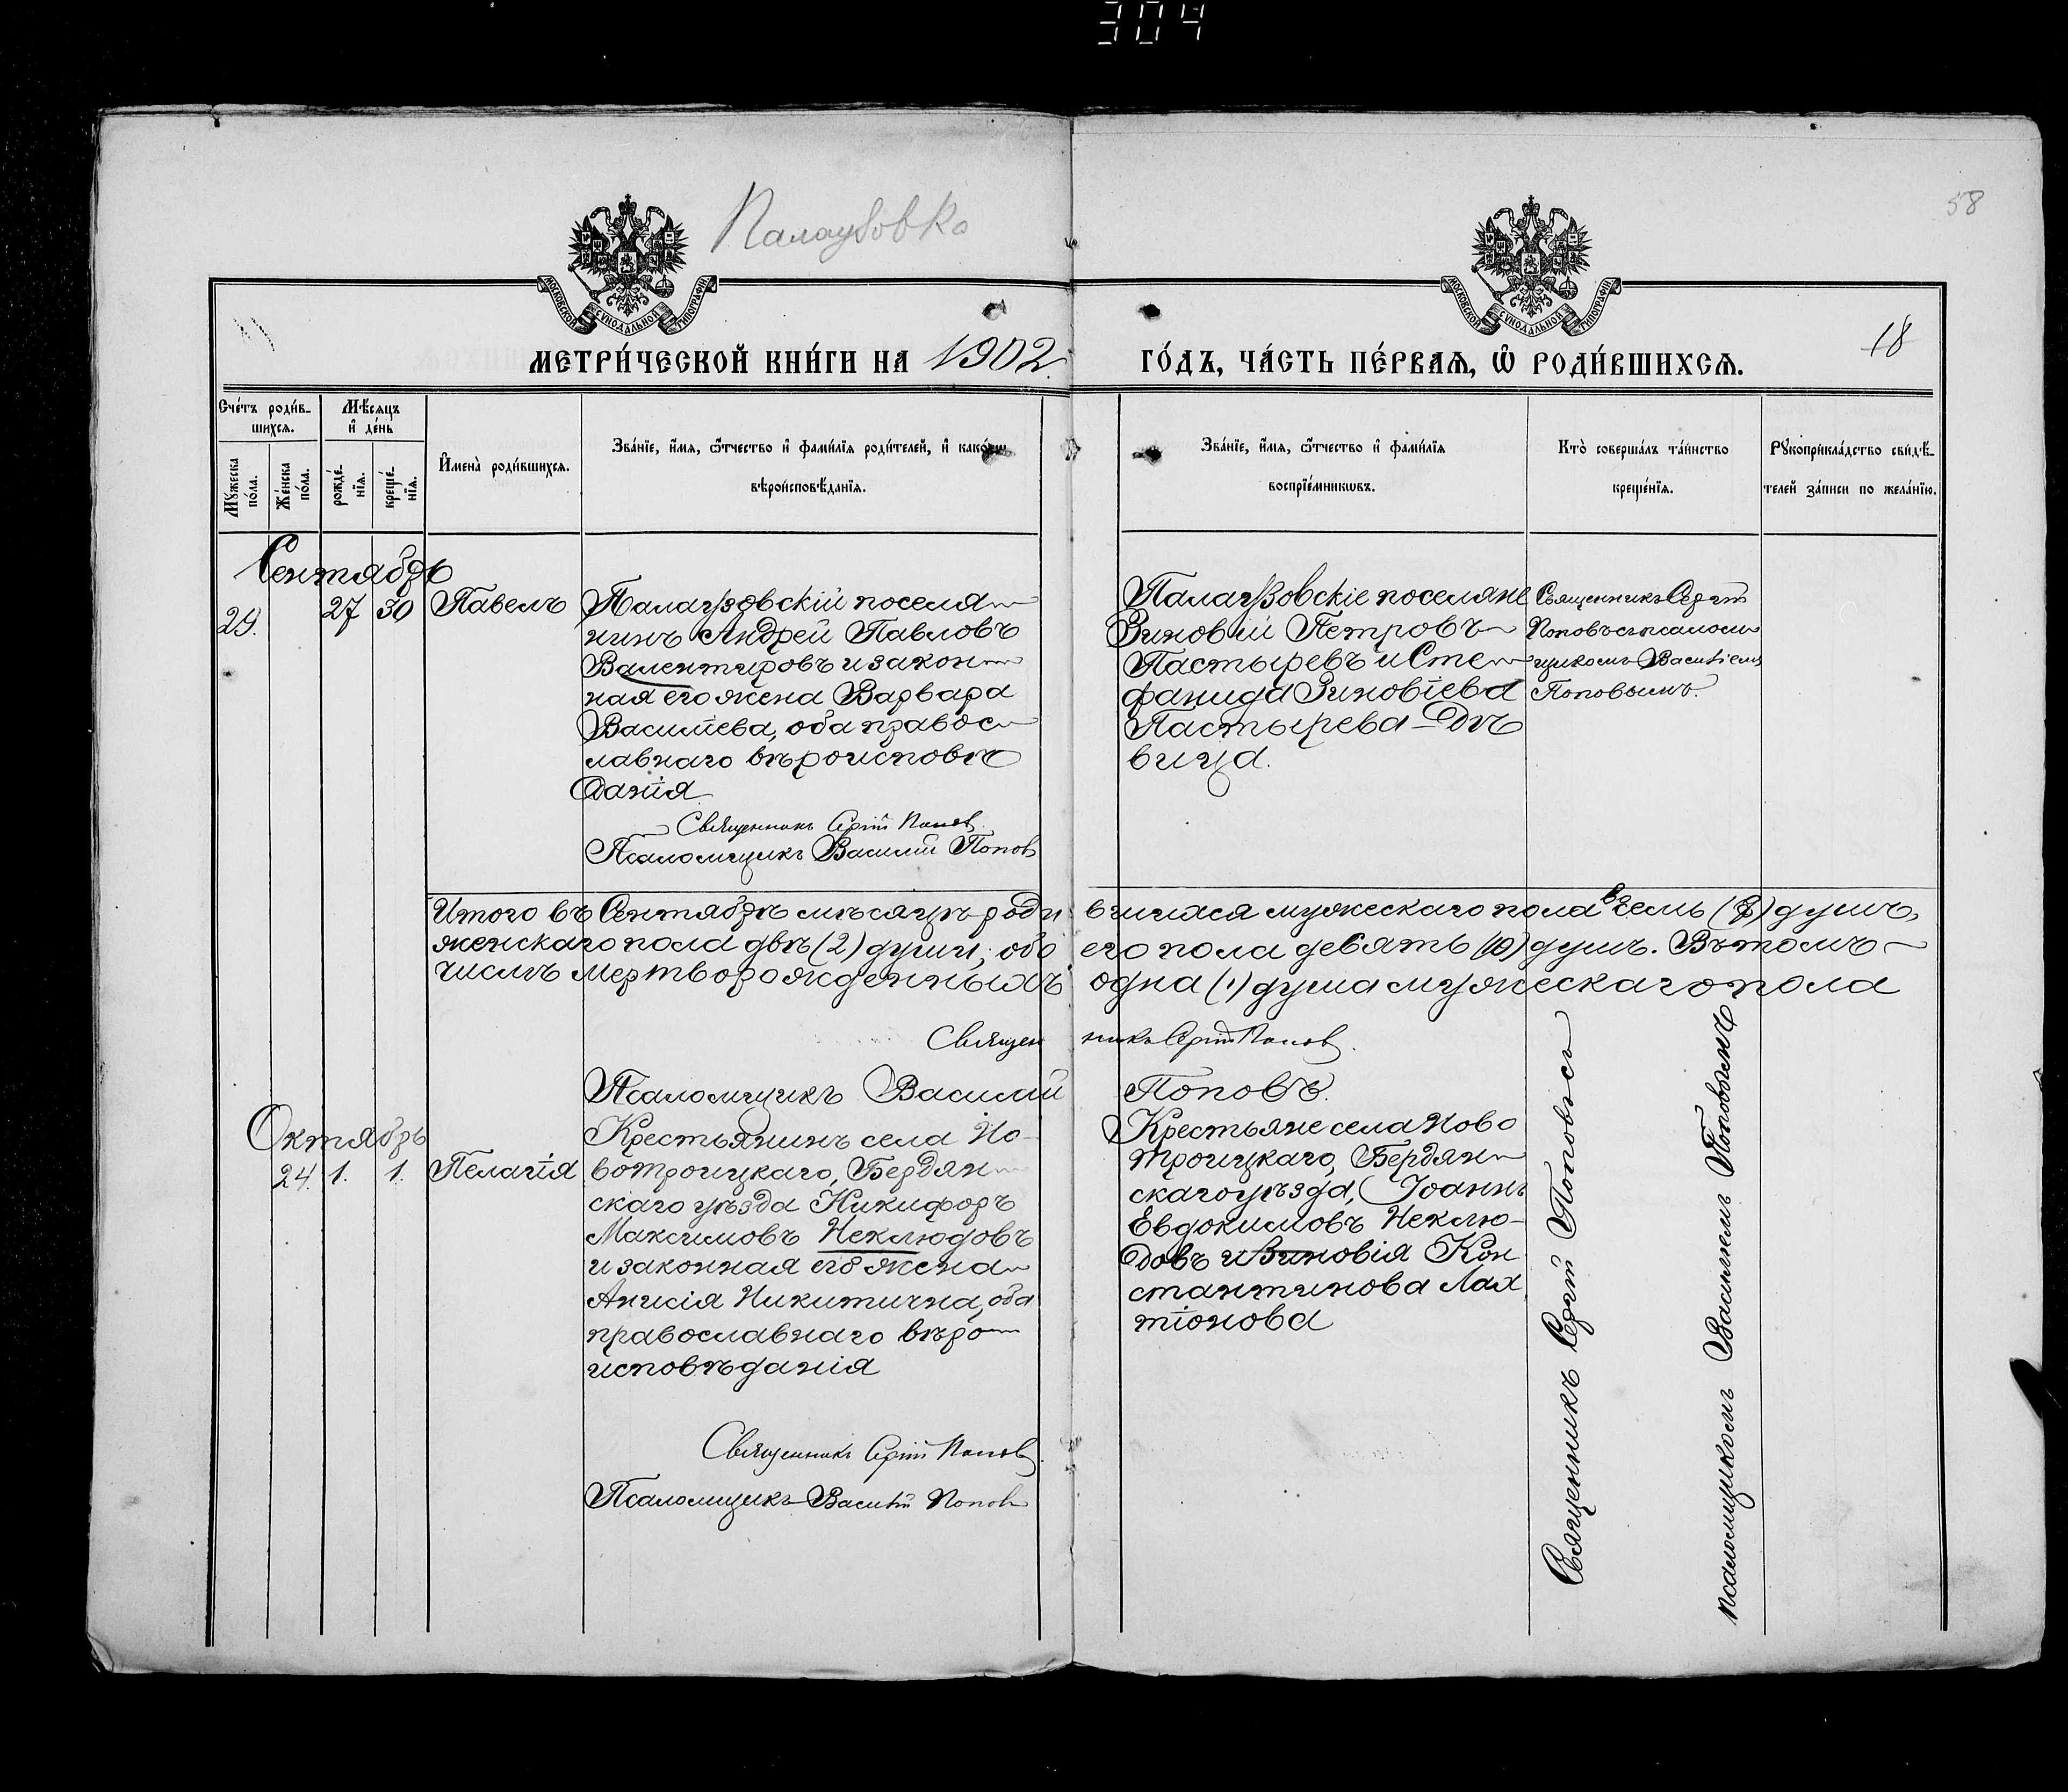 304
58
Палаузовка
МОСКОВСКОЙ СУНОДАЛЬНОЙ ТИПОГРАФІИ.
МОСКОВСКОЙ СУНОДАЛЬНОЙ ТИПОГРАФІИ.
18
МЕТРИ́ЧЕСКОЙ КНИ́ГИ НА 1902 ГО́ДЪ, ЧА́СТЬ ПЕ́РВАѦ, Ѽ РОДИ́ВШИХСѦ.
Сче́тъ роди́в-
шихсѧ.
Мꙋ́жеска
по́ла.
Же́нска
по́ла.
Мѣ́сѧцъ
и҆ де́нь
рожде́-
нїѧ.
креще́-
нїѧ.
И҆мена̀ роди́вшихсѧ.
Зва́нїе, и҆́мѧ, ѻ҆́тчество и҆ фами́лїѧ роди́телей, и҆ како́гѡ
вѣроисповѣ́данїѧ.
Зва́нїе, и҆́мѧ, ѻ҆́тчество и҆ фами́лїѧ
воспрїе́мникѡвъ.
Кто̀ соверша́лъ та́инство
креще́нїѧ.
Рꙋкоприкла́дство свидѣ́-
телей за́писи по жела́нїю.
Сентябрь
29. 27 30 Павелъ
Палаузовскій поселя-
нинъ Андрей Павловъ
Валентировъ и закон-
ная его жена Варвара
Василіева, оба правос-
лавнаго вѣроисповѣ
данія
Священникъ Сергій Попов
Псаломщикъ Василій Попов
Палаузовскіе поселяне
Зиновій Петровъ
Пастыревъ и Сте-
фанида Зиновіева
Пастырева - дѣ
вица.
Священникъ Сергій
Поповъ съ псалом
щикомъ Василіемъ
Поповымъ.
Итого въ Сентябрѣ мѣсяцѣ роди вшихся мужескаго пола (8) душъ,
женскаго пола двѣ (2) души; обо его пола девять (10) душъ. Въ томъ
числѣ мертворожденныхъ одна (1) душа мужескаго пола
Священ никъ Сергій Попов.
Псаломщикъ Василій Поповъ.
Октябрь
24. 1. 1. Пелагія
Крестьянинъ села Но-
вотроицкаго, Бердян-
скаго уѣзда Никифоръ
Максимовъ Неклюдовъ
и законная его жена
Анисія Никитична, оба
православнаго вѣро-
исповѣданія
Священникъ Сергій Попов.
Псаломщикъ Василій Попов
Крестьяне села Ново
троицкаго, Бердян-
скаго уѣзда, Іоаннъ
Евдокимовъ Неклю-
довъ и Зиновія Кон
стантинова Лах
тіонова
Священникъ Сергій Поповъ съ
псаломщикомъ Василіемъ Поповымъ